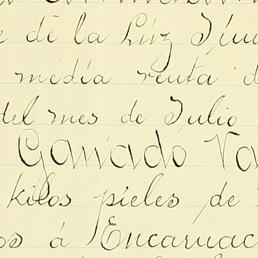 de la Luz Jim
média renta d
del mes de Julio
Ganado Va
kilos pieles de
os á Encarnac